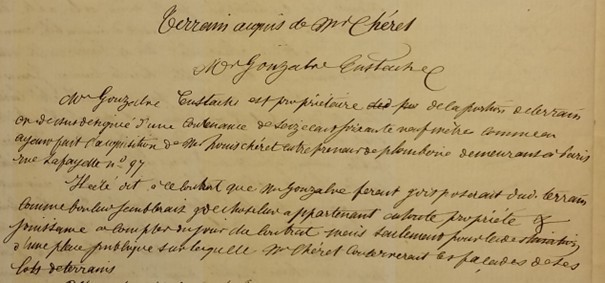 Terrain acquis de Mr Chéret
Mr Gonzalve Eustache
Mr Gonzalve Eustache est propriétaire de la portion de terrain
ci dessus désignée d'une contenance de seize cent soixante neuf mètre comme en
ayant fait l'acquisition de Mr Louis Chéret entrepreneur de plomberie demeurant à Paris
rue Lafayette no 97
Il a été dit que Mr Gonzalve terrain
comme bon leur semblerais appartenant propriété &
jouissance à compter du jour du mais seulement pour
d'une place publique sur laquelle Mr Chéret façades de ses
lots de terrains